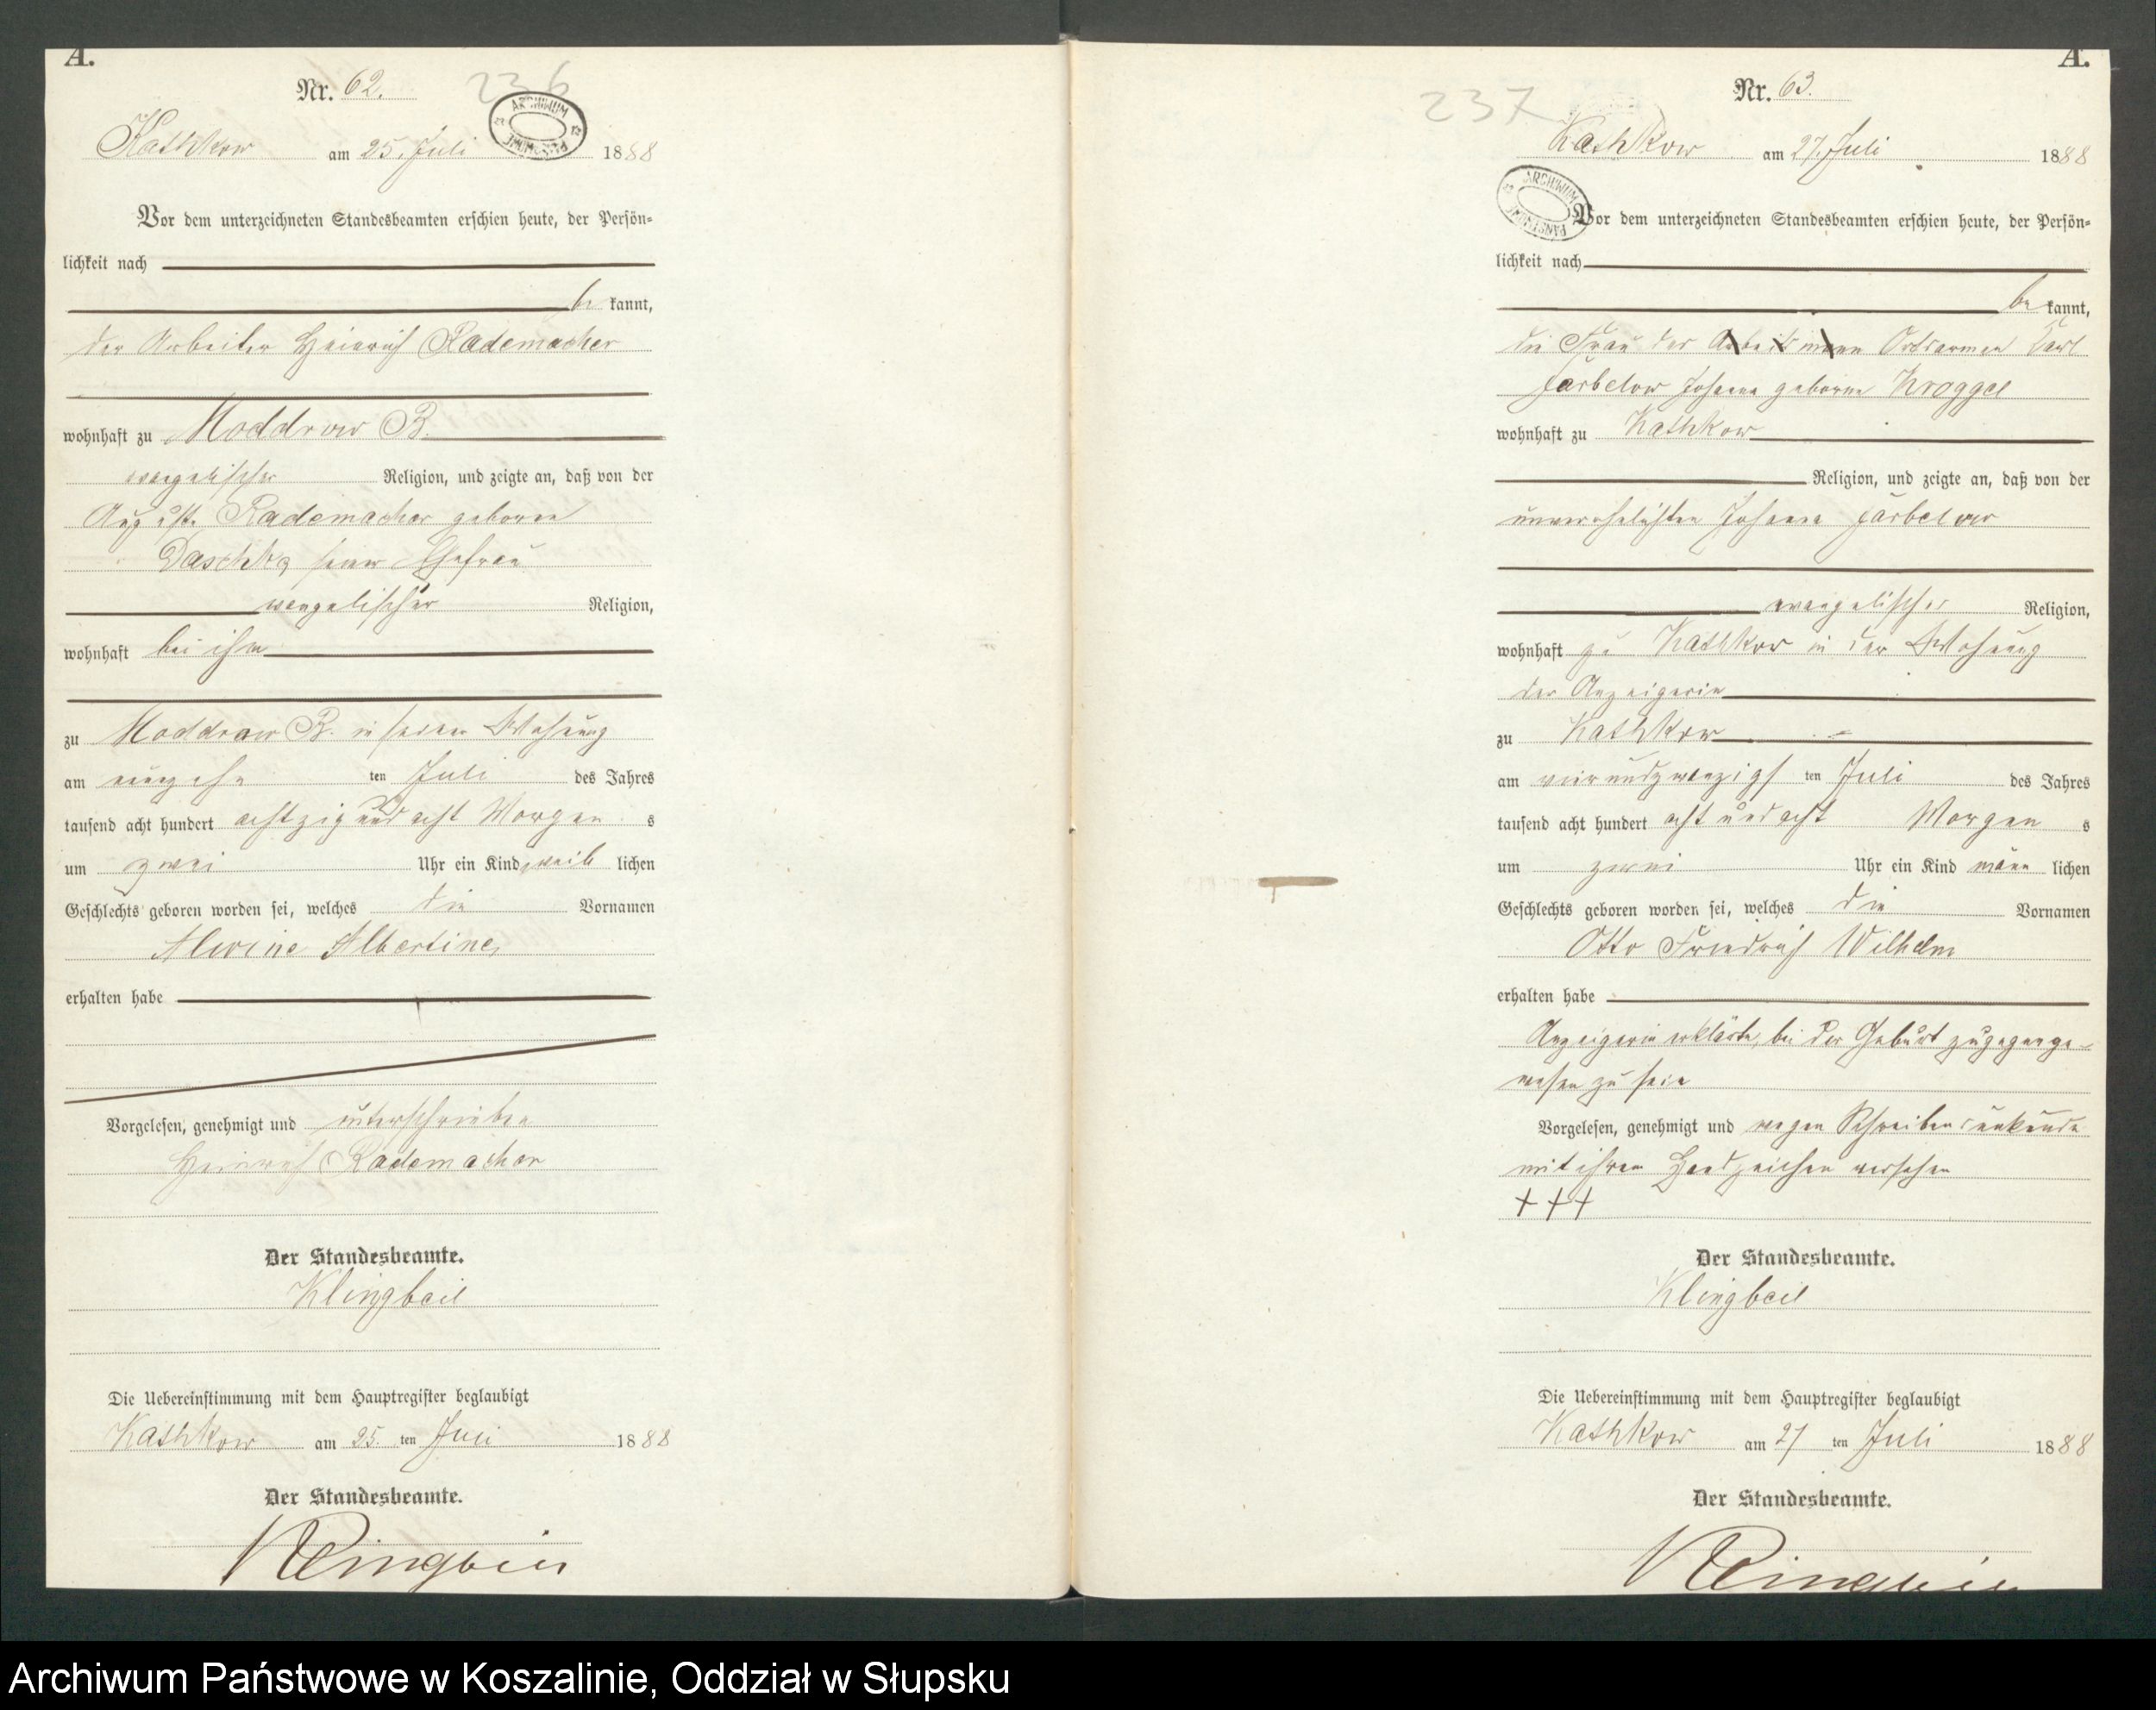 A.
Nr. 62.
236
Kathkow am 25. Juli 1888
Vor dem unterzeichneten Standesbeamten erschien heute, der Persön-
lichkeit nach
be kannt,
der Arbeiter Heinrich Rademacher
wohnhaft zu Moddrow B.
evangelischer Religion, und zeigte an, daß von der
Auguste Rademacher geborene
Daschke seiner Ehefrau
evangelischer Religion,
wohnhaft bei ihm
zu Moddrow B. in seiner Wohnung
am ten Juli des Jahres
tausend acht hundert achtzig und acht Morgen s
um zwei Uhr ein Kind weib lichen
Geschlechts geboren worden sei, welches die Vornamen
Alwine Albertine,
erhalten habe
Vorgelesen, genehmigt und unterschrieben
Heinrich Rademacher
Der Standesbeamte.
Klingbeil
Die Uebereinstimmung mit dem Hauptregister beglaubigt
Kathkow am 25. ten Juli 1888
Der Standesbeamte.
Klingbeil
A.
Nr. 63.
237
Kathkow am 27. Juli 1888
ARCHIWUM
Vor dem unterzeichneten Standesbeamten erschien heute, der Persön-
lichkeit nach
be kannt,
die Frau des Arbeitsmann Ortsarmen Carl
Jarbelow Johanna geborne Kroggel
wohnhaft zu Kathkow
Religion, und zeigte an, daß von der
unverehelichten Johanna Jarbelow
evangelischer Religion,
wohnhaft zu Kathkow in der Wohnung
der Anzeigerin
zu Kathkow
am vierundzwanzigs ten Juli des Jahres
tausend acht hundert acht und acht Morgen s
um zwei Uhr ein Kind männ lichen
Geschlechts geboren worden sei, welches die Vornamen
Otto Friedrich Wilhelm
erhalten habe
Anzeigerin erklärte, bei der Geburt zugegen ge-
wesen zu sein
Vorgelesen, genehmigt und wegen Schreibensunkunde
mit ihrem Handzeichen versehen
+++
Der Standesbeamte.
Klingbeil
Die Uebereinstimmung mit dem Hauptregister beglaubigt
Kathkow am 27 ten Juli 1888
Der Standesbeamte.
Klingbeil
Archiwum Państwowe w Koszalinie, Oddział w Słupsku